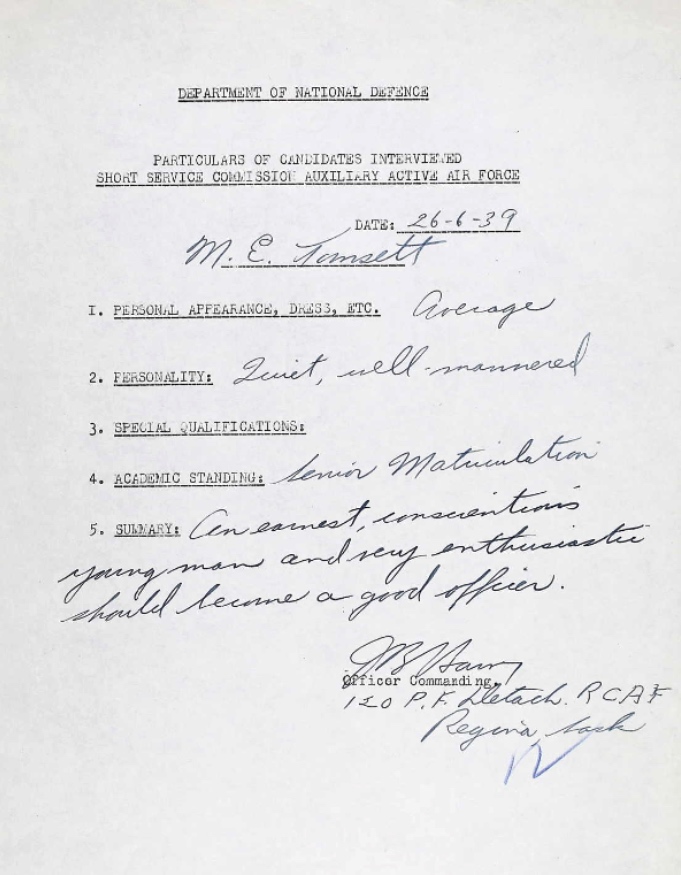 DEPARTMENT OF NATIONAL DEFENCE
PARTICULARS OF CANDIDATES INTERVIEWED
SHORT SERVICE COMMISSION AUXILIARY ACTIVE AIR FORCE
DATE: 26-6-39
M. E. Tomsett
1. PERSONAL APPEARANCE, DRESS, ETC. Average
2. PERSONALITY: Quiet, well-mannered
3. SPECIAL QUALIFICATIONS:
4. ACADEMIC STANDING: Senior Matriculation
5. SUMMARY: An earnest, conscientious
young man and very enthusiastic
should become a good officer.
Officer Commanding,
120 P.F. Detach. RCAF
Regina, Sask